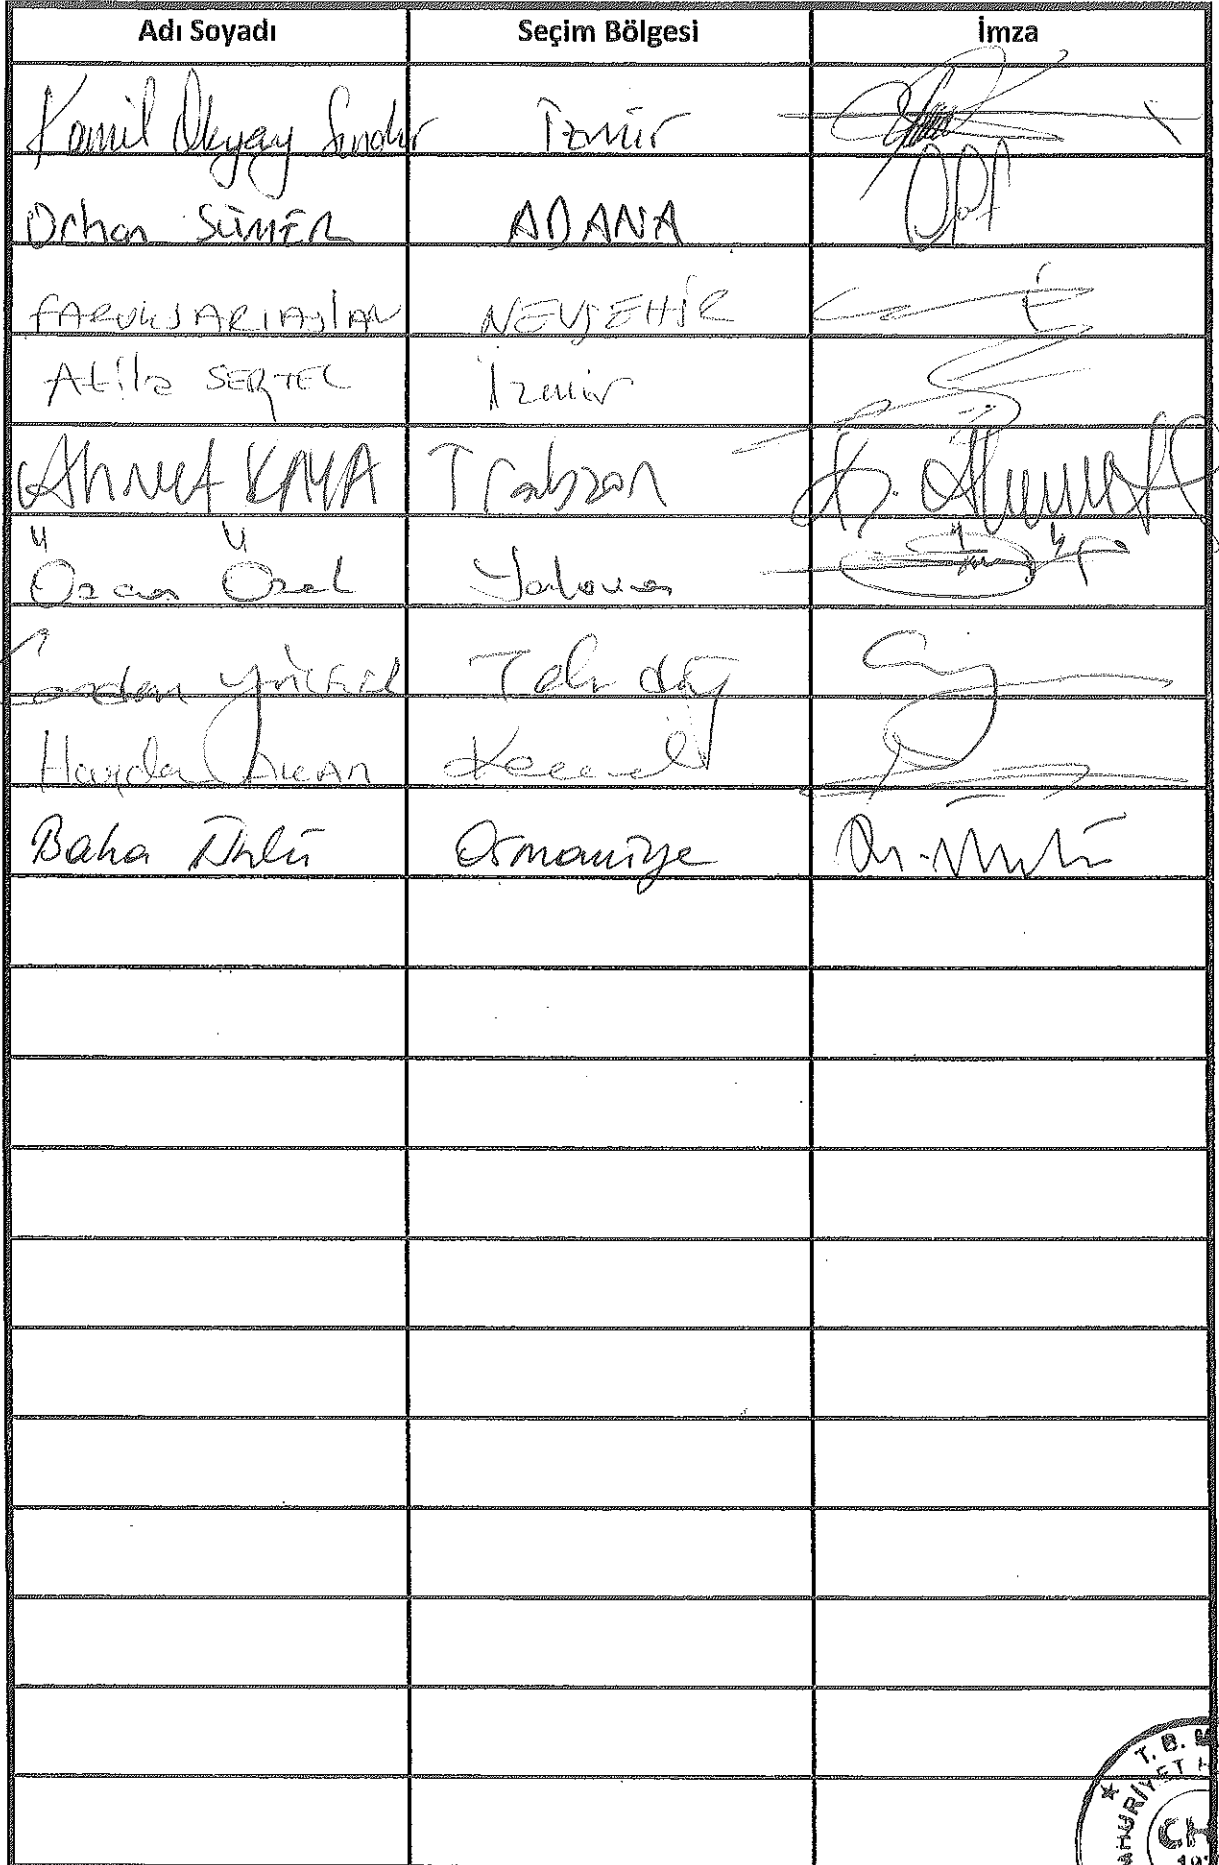 Adı Soyadı Seçim Bölgesi İmza
Kamil Okyay Sındır İzmir
Orhan SÜMER ADANA
FARUK SARIASLAN NEVŞEHİR
Atila SERTEL İzmir
Ahmet KAYA Trabzon
Özcan Özel Yalova
Candan Yüceer Tekirdağ
Haydar AKAR Kocaeli
Baha Ünlü Osmaniye
T. B.
CH